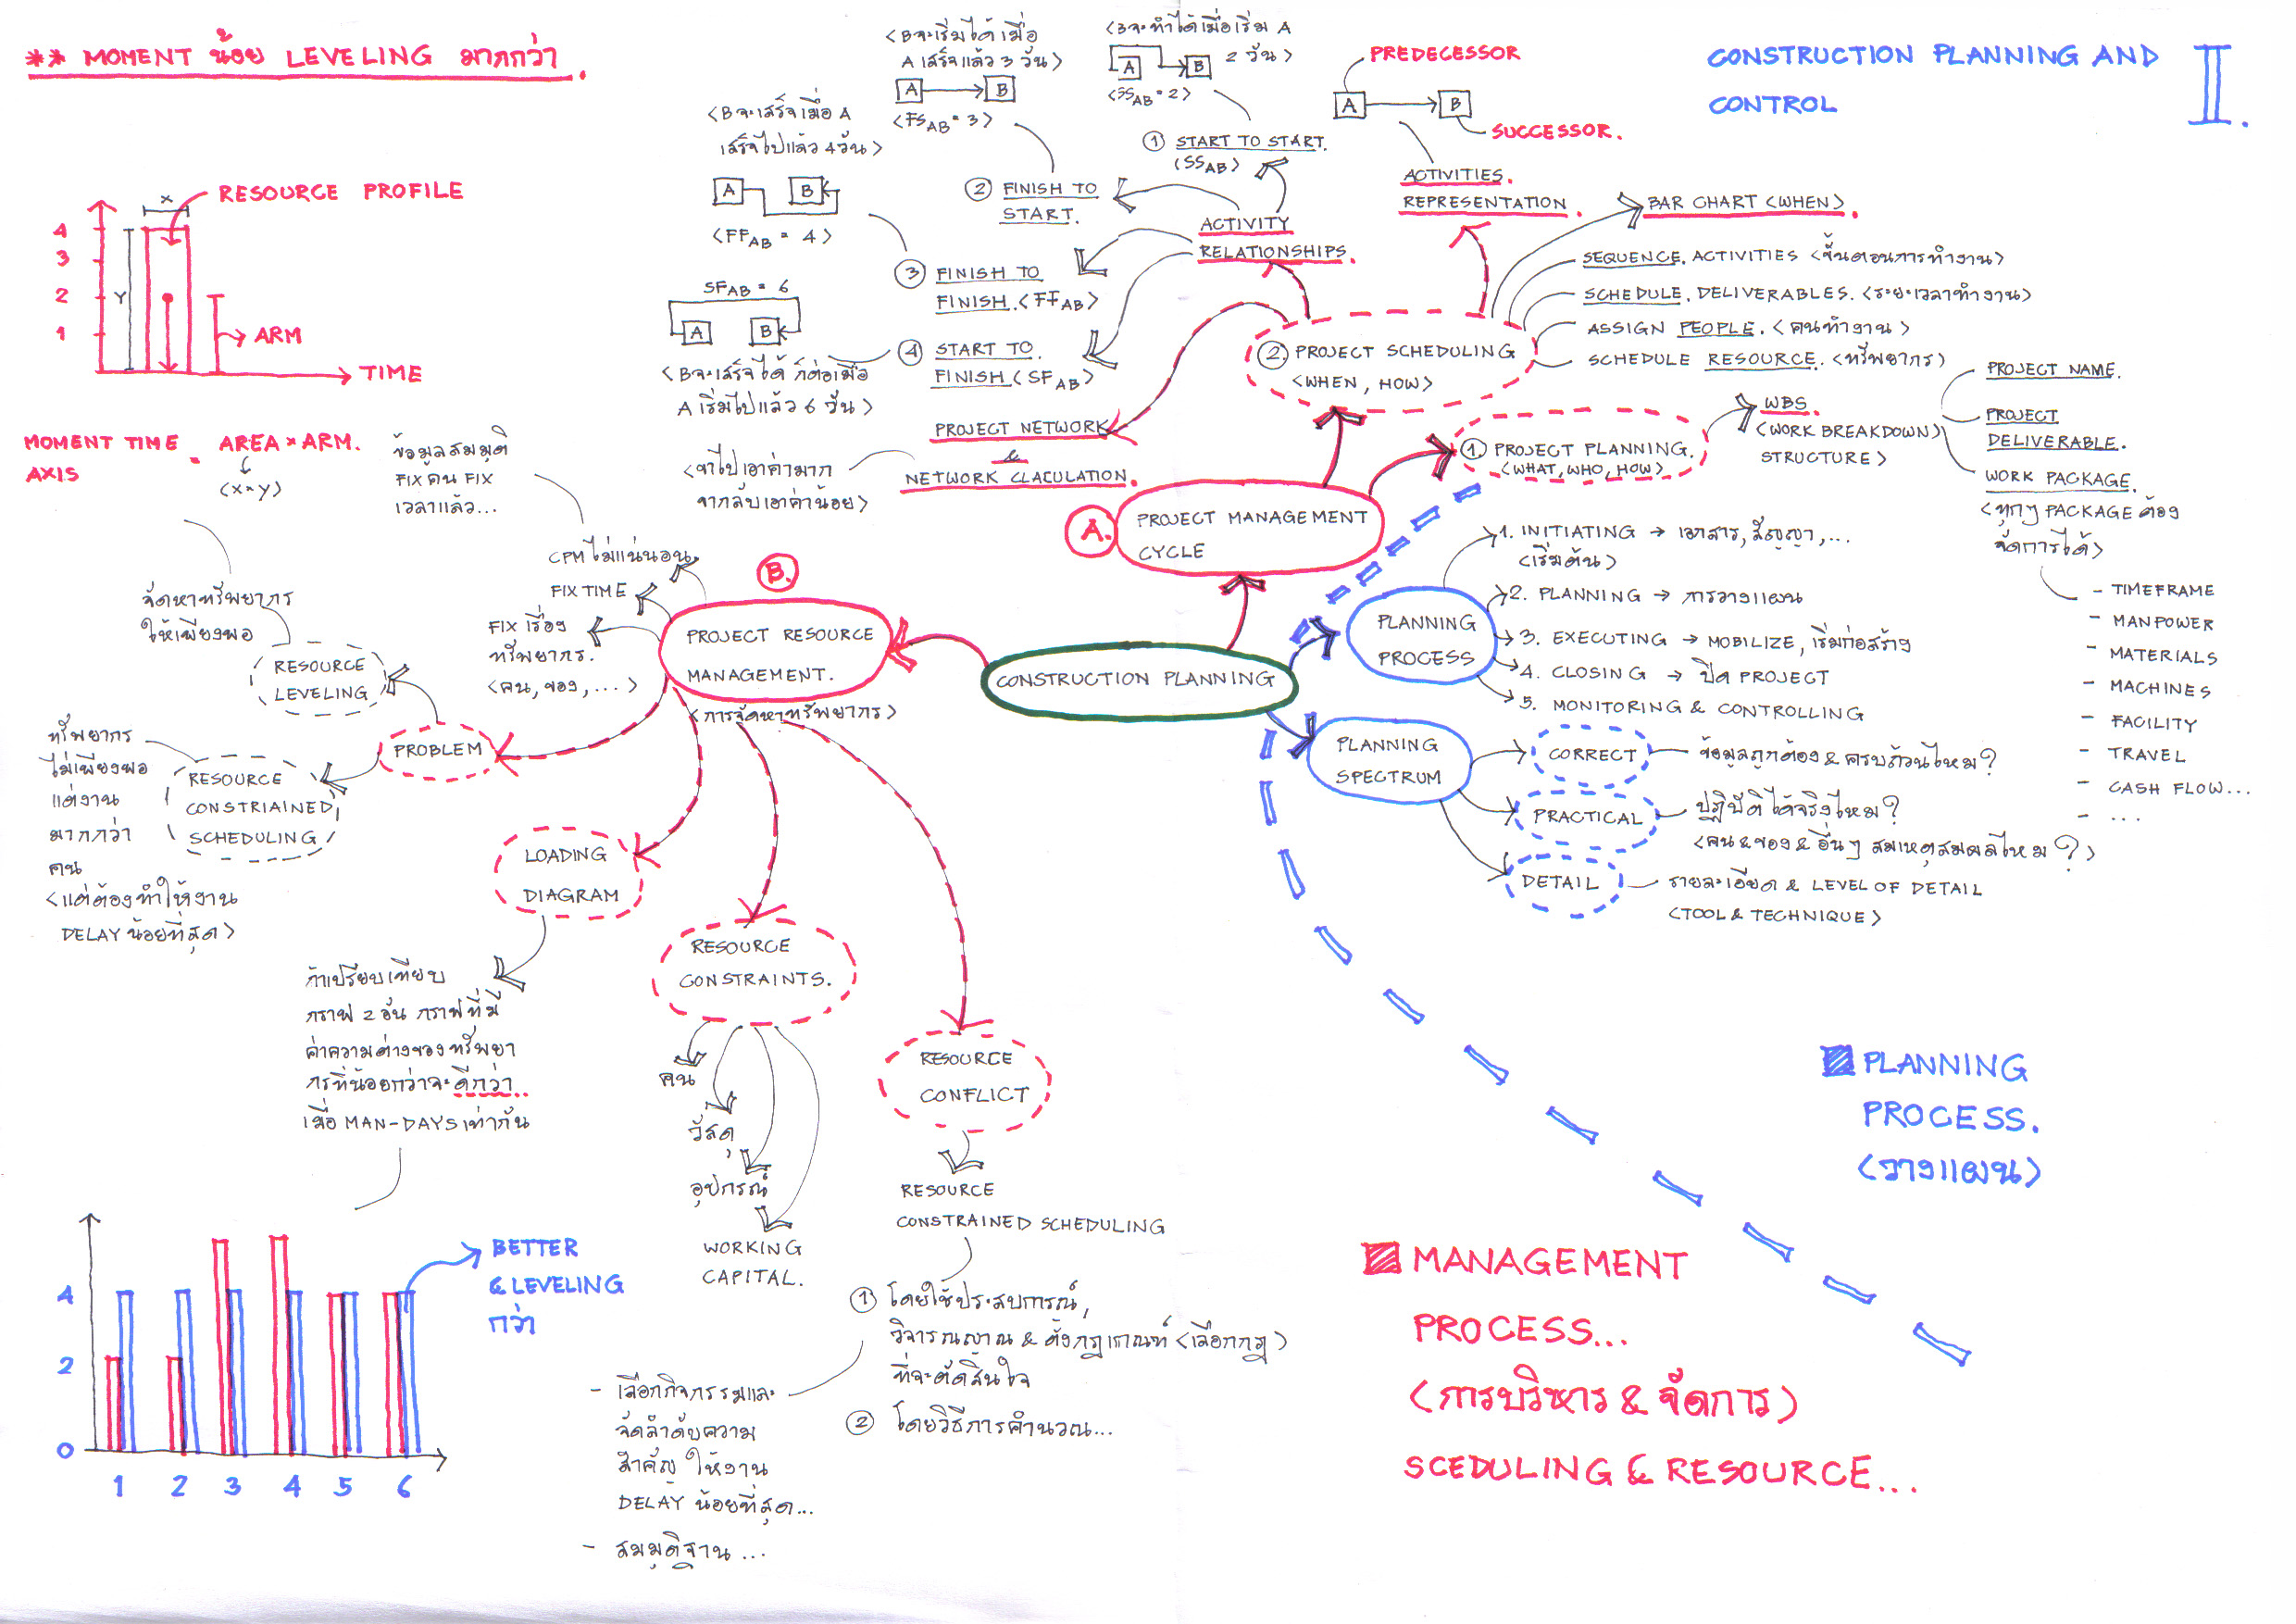 ** MOMENT น้อย LEVELING มากกว่า.
CONSTRUCTION PLANNING AND
CONTROL
II.
RESOURCE PROFILE
X
4
3
2
1
Y
ARM
TIME
MOMENT TIME = AREA × ARM.
AXIS
(X×Y)
ข้อมูลสมมุติ
FIX คน FIX
เวลาแล้ว...
<B จะเริ่มได้เมื่อ
A เสร็จแล้ว 3 วัน>
A
B
<FS AB = 3>
<B จะทำได้เมื่อเริ่ม A
2 วัน>
A
B
<SS AB = 2>
<B จะเสร็จเมื่อ A
เสร็จไปแล้ว 4 วัน>
A
B
<FF AB = 4>
SF AB = 6
A
B
<B จะเสร็จได้ ก็ต่อเมื่อ
A เริ่มไปแล้ว 6 วัน>
① START TO START.
(SS AB)
② FINISH TO
START.
③ FINISH TO
FINISH. <FF AB>
④ START TO.
FINISH (SF AB)
ACTIVITY
RELATIONSHIPS.
PREDECESSOR
A
B
SUCCESSOR.
ACTIVITIES.
REPRESENTATION.
BAR CHART <WHEN>.
SEQUENCE. ACTIVITIES <ขั้นตอนการทำงาน>
SCHEDULE. DELIVERABLES. <ระยะเวลาทำงาน>
ASSIGN PEOPLE. <คนทำงาน>
SCHEDULE RESOURCE. <ทรัพยากร>
② PROJECT SCHEDULING
<WHEN, HOW>
PROJECT NETWORK
&
NETWORK CLACULATION.
<ขาไปเอาค่ามาก
ขากลับเอาค่าน้อย>
① PROJECT PLANNING.
<WHAT, WHO, HOW>
WBS.
(WORK BREAKDOWN)
STRUCTURE>
PROJECT NAME.
PROJECT
DELIVERABLE.
WORK PACKAGE.
<ทุกๆ PACKAGE ต้อง
จัดการได้>
- TIMEFRAME
- MANPOWER
- MATERIALS
- MACHINES
- FACILITY
- TRAVEL
- CASH FLOW...
- ...
A.
PROJECT MANAGEMENT
CYCLE
B.
PROJECT RESOURCE
MANAGEMENT.
<การจัดหาทรัพยากร>
CPM ไม่แน่นอน.
FIX TIME
FIX เรื่อง
ทรัพยากร.
<คน, ของ, ...>
CONSTRUCTION PLANNING
PLANNING
PROCESS
1. INITIATING → เอกสาร, สัญญา, ...
<เริ่มต้น>
2. PLANNING → การวางแผน
3. EXECUTING → MOBILIZE, เริ่มก่อสร้าง
4. CLOSING → ปิด PROJECT
5. MONITORING & CONTROLLING
PLANNING
SPECTRUM
CORRECT
ข้อมูลถูกต้อง & ครบถ้วนไหม?
PRACTICAL
ปฏิบัติได้จริงไหม?
<คน & ของ & อื่นๆ สมเหตุสมผลไหม?>
DETAIL
รายละเอียด & LEVEL OF DETAIL
<TOOL & TECHNIQUE>
จัดหาทรัพยากร
ให้เพียงพอ
RESOURCE
LEVELING
PROBLEM
ทรัพยากร
ไม่เพียงพอ
แต่งาน
มากกว่า
คน
<แต่ต้องทำให้งาน
DELAY น้อยที่สุด>
RESOURCE
CONSTRIAINED
SCHEDULING
LOADING
DIAGRAM
ถ้าเปรียบเทียบ
กราฟ 2 อัน กราฟที่มี
ค่าความต่างของทรัพยา
กรที่น้อยกว่าจะดีกว่า..
เมื่อ MAN-DAYS เท่ากัน
RESOURCE
CONSTRAINTS.
คน
วัสดุ
อุปกรณ์
WORKING
CAPITAL.
RESOURCE
CONFLICT
RESOURCE
CONSTRAINED SCHEDULING
① โดยใช้ประสบการณ์,
วิจารณญาณ & ตั้งกฎเกณฑ์ <เลือกกฎ>
ที่จะตัดสินใจ
② โดยวิธีการคำนวณ...
- เลือกกิจกรรมและ
จัดลำดับความ
สำคัญ ให้งาน
DELAY น้อยที่สุด...
- สมมุติฐาน ...
4
2
0
1 2 3 4 5 6
BETTER
& LEVELING
กว่า
PLANNING
PROCESS.
<วางแผน>
MANAGEMENT
PROCESS...
(การบริหาร & จัดการ)
SCEDULING & RESOURCE...